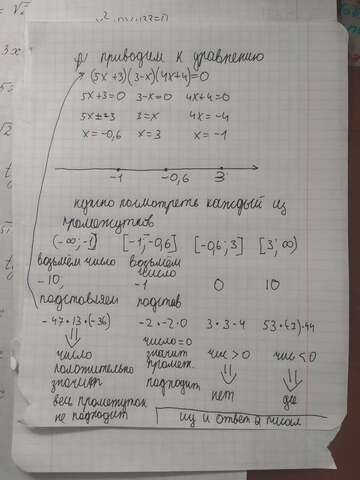 приводим к уравнению
(5x+3)(3-x)(4x+4)=0
5x+3=0 3-x=0 4x+4=0
5x=-3 3=x 4x=-4
x=-0,6 x=3 x=-1
-1 -0,6 3
нужно посмотреть каждый из
промежутков
(-∞;-1] [-1;-0,6] [-0,6;3] [3;∞)
возьмем число возьмем число
-10, -1 0 10
подставляем подстав
-47·13·(-36) -2·-2·0 3·3·4 53·(-7)·44
число положительно значит весь промежуток не подходит
число=0 значит промеж. подходит
чис>0 нет
чис<0 да
ну и ответ